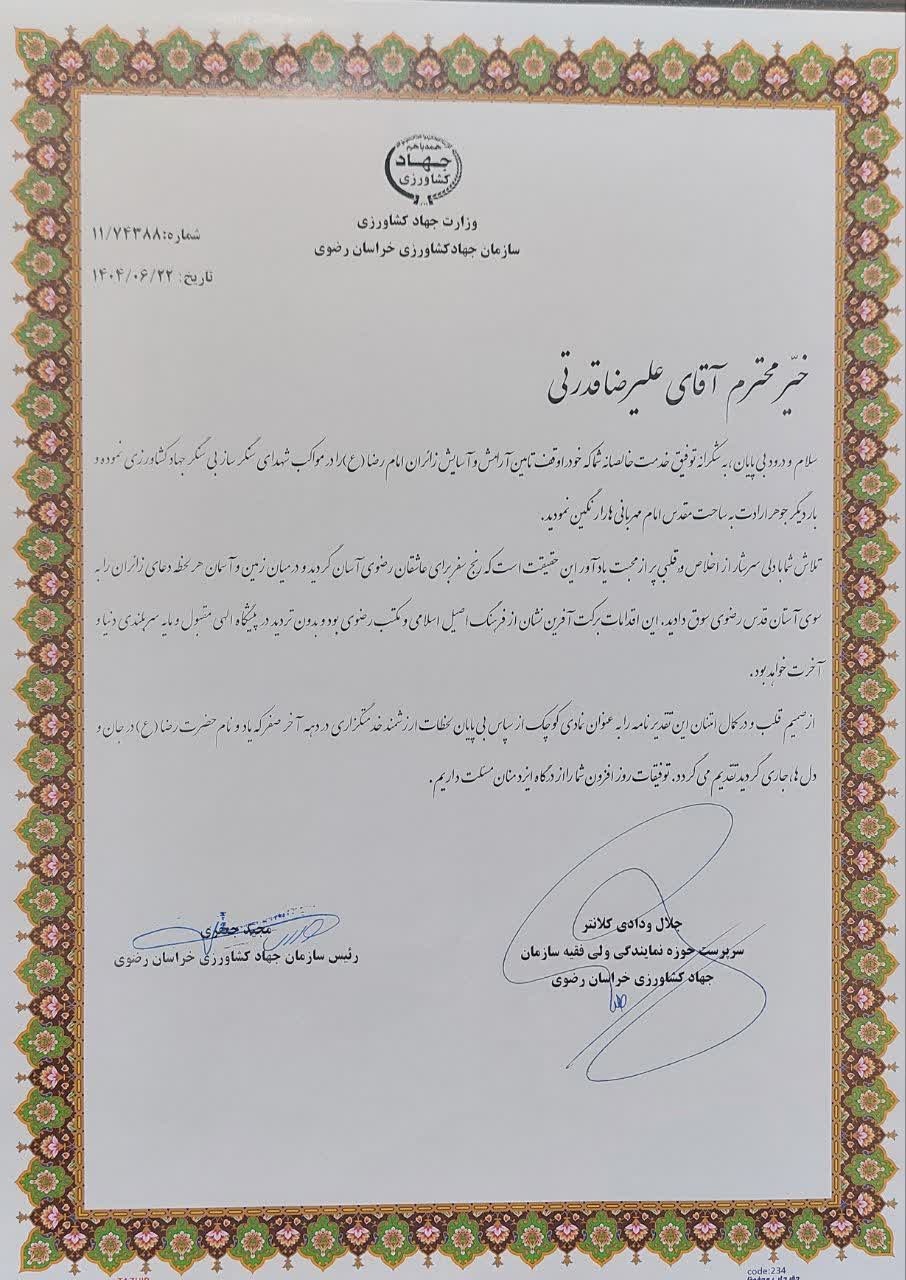 همه با هم
جهاد
کشاورزی
وزارت جهاد کشاورزی
سازمان جهاد کشاورزی خراسان رضوی
شماره: ۱۱/۷۴۳۸۸
تاریخ: ۱۴۰۴/۰۶/۲۲
خیّر محترم آقای علیرضا قدرتی
سلام و درود بی پایان، به شکرانه توفیق خدمت خالصانه شما که خود را وقف تامین آرامش و آسایش زائران امام رضا (ع) را در مواکب شهدای سنگر ساز بی سنگر جهاد کشاورزی نموده و
بار دیگر جوهر ارادت به ساحت مقدس امام مهربانی ها را رنگین نمودید.
تلاش شما با دلی سرشار از اخلاص و قلبی پر از محبت یادآور این حقیقت است که رنج سفر برای عاشقان رضوی آسان گردید و درمیان زمین و آسمان هر لحظه دعای زائران را به
سوی آستان قدس رضوی سوق دادید. این اقدامات برکت آفرین نشان از فرهنگ اصیل اسلامی و مکتب رضوی بود و بدون تردید در پیشگاه الهی مقبول و مایه سربلندی دنیا و
آخرت خواهد بود.
از صمیم قلب و در کمال امتنان این تقدیرنامه را به عنوان نمادی کوچک از سپاس بی پایان لحظات ارزشمند خدمتگزاری در دهه آخر صفر که یاد و نام حضرت رضا (ع) در جان و
دل ها جاری گردید تقدیم می گردد. توفیقات روز افزون شما را از درگاه ایزد منان مسئلت داریم.
جلال ودادی کلانتر
سرپرست حوزه نمایندگی ولی فقیه سازمان
جهاد کشاورزی خراسان رضوی
مجید جعفری
رئیس سازمان جهاد کشاورزی خراسان رضوی
code:234